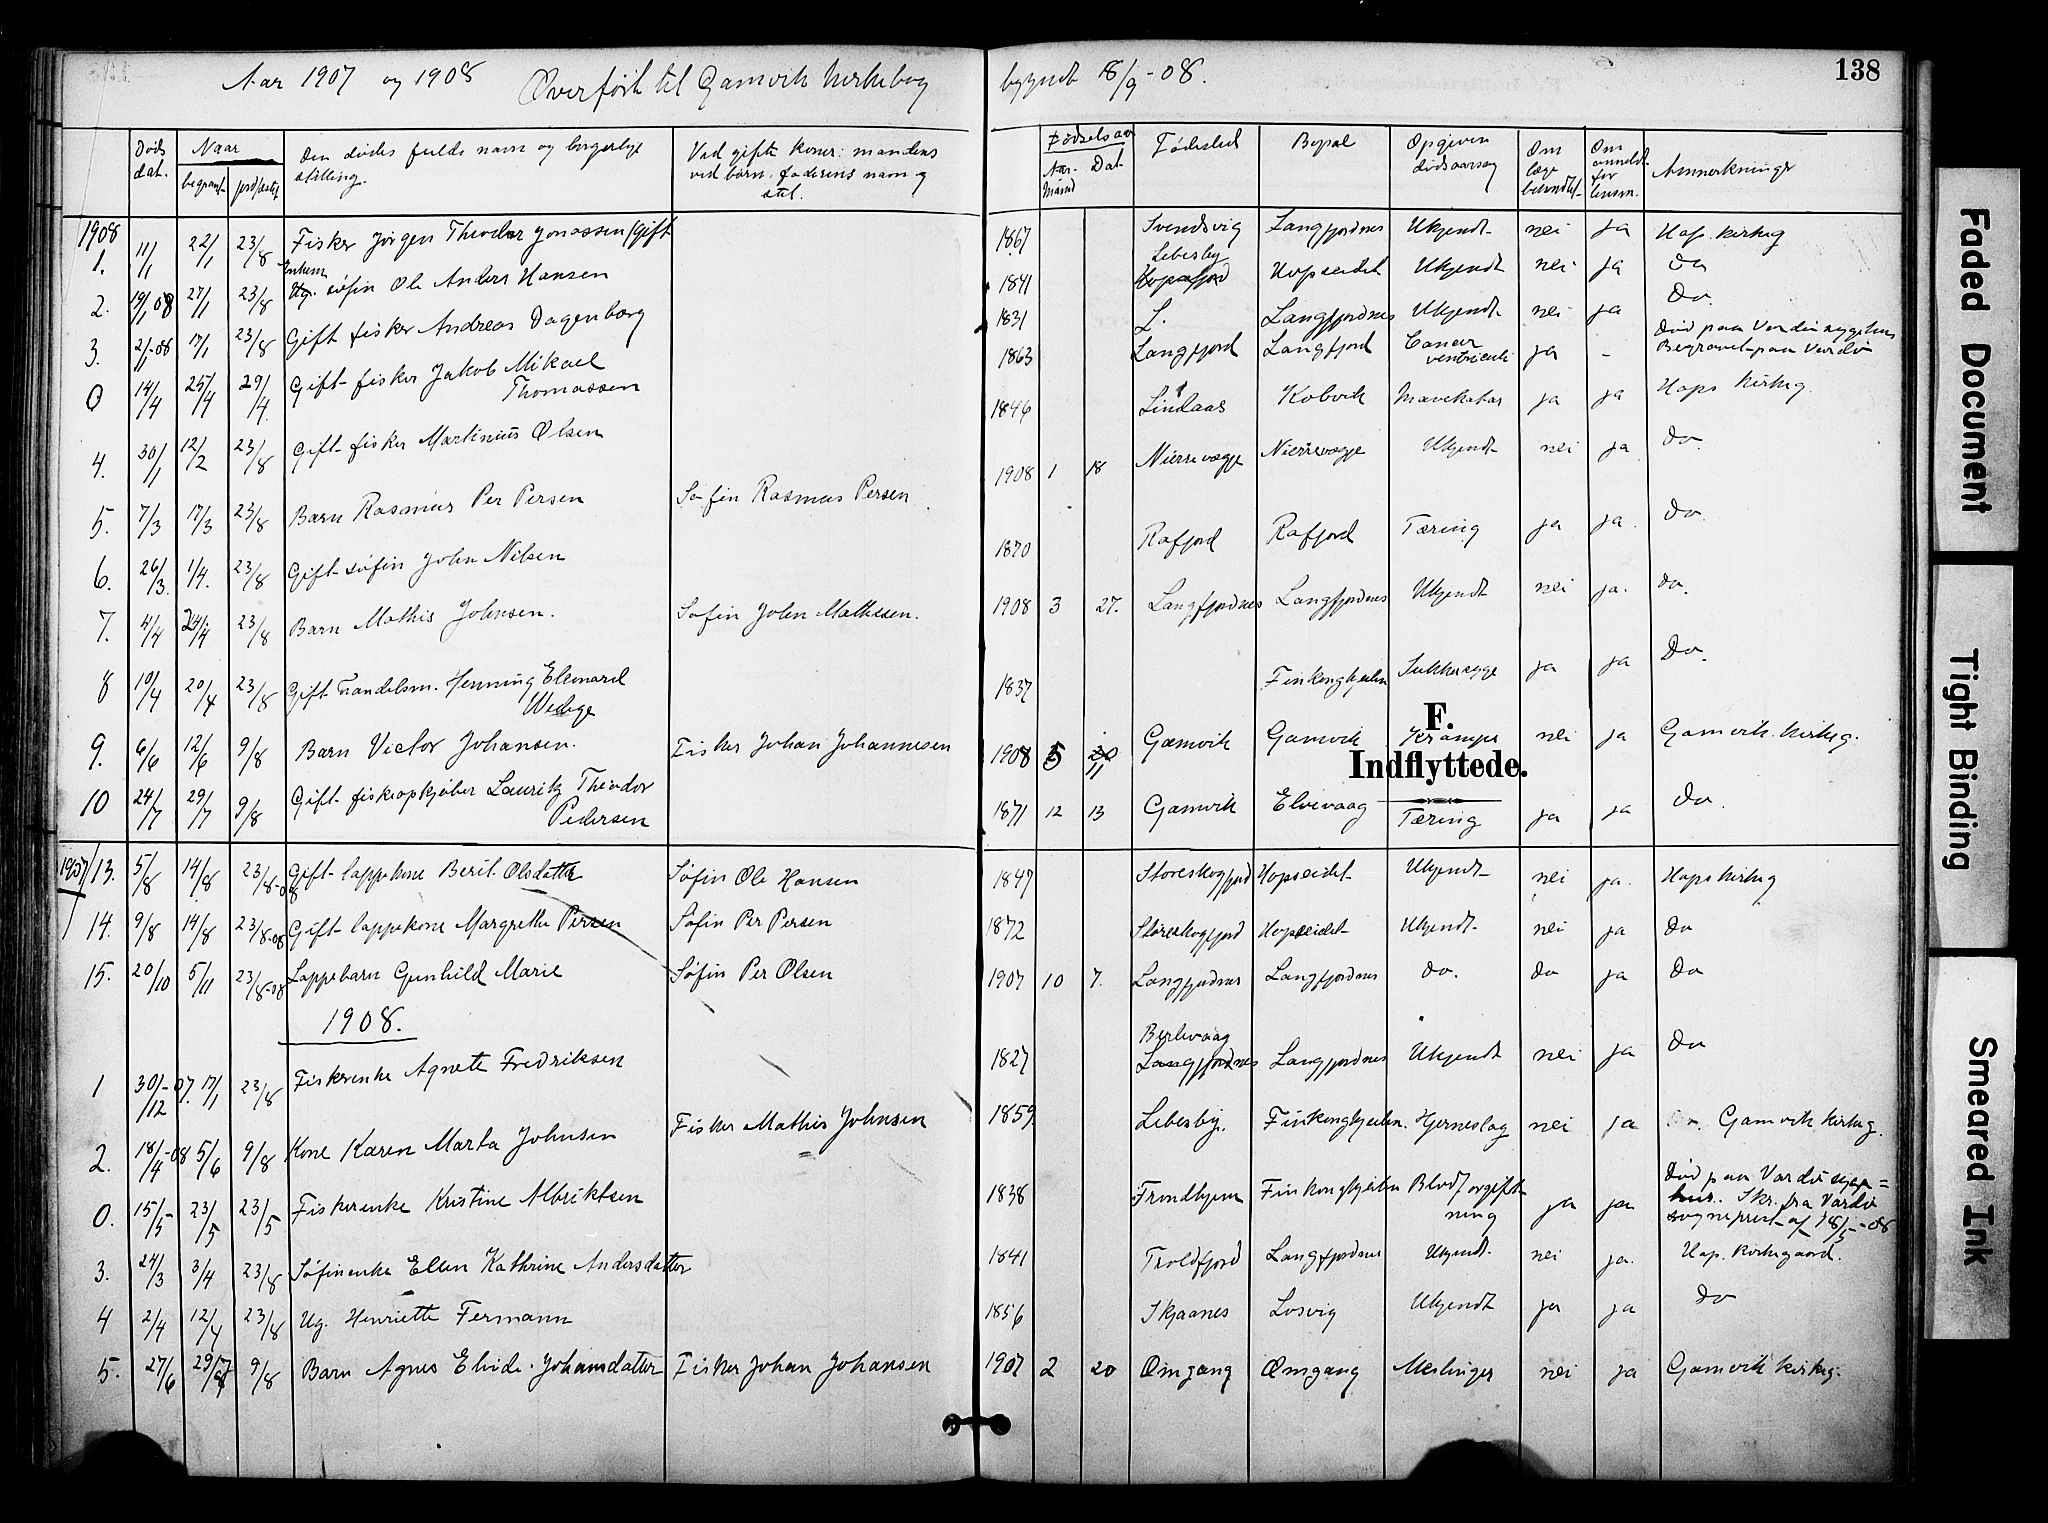 Aar 1907 og 1908 Overført til Gamvik kirkebog begyndt 18/9-08.
138
Døds dat. Naar begravet jordfæstet Den dødes fulde navn og borgerlige stilling. Ved gifte koner: mandens ved børn, faderens navn og stil. Fødselsaar Aar. Maaned Dat. Fødested Bopæl Opgiven dødsaarsag Om læge behandlet Om anmeldt for lensm. Anmerkninger
1908
1. 11/1 22/1 23/8 Fisker Jørgen Theodor Jonassen (gift 1867 Svendsvig Lebesby Langfjordnes Ukjendt nei ja Hop. kirkeg
2. 19/1 08 27/1 23/8 Enkem. søfin Ole Anders Hansen 1841 Hopsfjord Hopseidet Ukjendt nei ja do
3. 2/1-08 17/1 23/8 Gift fisker Andreas Dagenborg 1831 L. Langfjordnes Ukjendt nei ja Do.
0 14/4 25/4 29/4 Gift fisker Jakob Mikael Thomassen 1863 Langfjord Langfjord Cancer ventriculi ja - Død paa Vardø sygehus Begravet paa Vardø
4. 30/1 12/2 23/8 Gift fisker Martinius Olsen 1846 Lindaas Kobvik Mavekatar ja ja Hops kirkeg.
5. 7/3 17/3 23/8 Barn Rasmus Per Persen Søfin Rasmus Persen 1908 1 18 Nierrevagge Nierrevagge Ukjendt nei ja do.
6. 26/3 1/4. 23/8 Gift søfin John Nilsen 1870 Rafjord Rafjord Tæring ja ja. do.
7. 4/4 24/4 23/8 Barn Mathis Johnsen. Søfin John Mathisen. 1908 3 27. Langfjordnes Langfjordnes Ukjendt nei ja. do.
8 10/4 20/4 23/8 Gift handelsm. Henning Edevard Wedege 1837 Finkongkeilen Sukkersyge ja ja Do.
9. 6/6 12/6 9/8 Barn Victor Johansen. Fisker Johan Johannesen 1908 5 11 Gamvik Gamvik Krampe nei ja Gamvik kirkeg.
F.
Indflyttede.
10 24/7 29/7 9/8 Gift fiskeopkjøber Lauritz Theodor Pedersen 1871 12 13 Gamvik Elvevaag Tæring ja ja do.
1907/13. 5/8 14/8 23/8-08 Gift lappekone Berit Olsdatter Søfin Ole Hansen 1847 Storeskogfjord Hopseidet Ukjendt nei ja. Hops kirkeg
14. 9/8 14/8 23/8-08 Gift lappekone Margrethe Persen Søfin Per Persen 1872 Storeskogfjord Hopseidet Ukjendt nei ja do
15. 20/10 5/11 23/8-08 Lappebarn Gunhild Marie Søfin Per Olsen 1907 10 7. Langfjordnes Langfjordnes do. do ja do
1908.
1 30/12-07. 17/1 23/8 Fiskerenke Agnete Fredriksen 1827 Berlevaag Langfjordnes Langfjordnes Ukjendt nei ja do
2. 18/4-08 5/6 9/8 Kone Karen Marta Johnsen Fisker Mathis Johnsen 1859 Lebesby. Finkongkeilen. Hjerneslag nei ja Gamvik kirkeg.
0. 15/5 23/5 23/5 Fiskerenke Kristine Albriktsen 1838 Trondhjem Finkongkeilen Blodforgiftning ja ja Død paa Vardø sygehus. Skr. fra Vardø sogneprest af 18/5-08
3. 24/3 3/4 23/8 Søfinenke Ellen Kathrine Andersdatter 1841 Troldfjord Langfjordnes Ukjendt. nei ja. Hop. kirkegaard.
4 2/4 12/4 23/8 Ug. Henriette Fermann 1856 Skjaanes Losvig Ukjendt ja ja do
5. 27/6 29/7 9/8 Barn Agnes Elvide Johansdatter Fisker Johan Johansen 1907 2 20 Omgang Omgang Meslinger nei ja Gamvik kirkeg.
Faded Document
Tight Binding
Smeared Ink